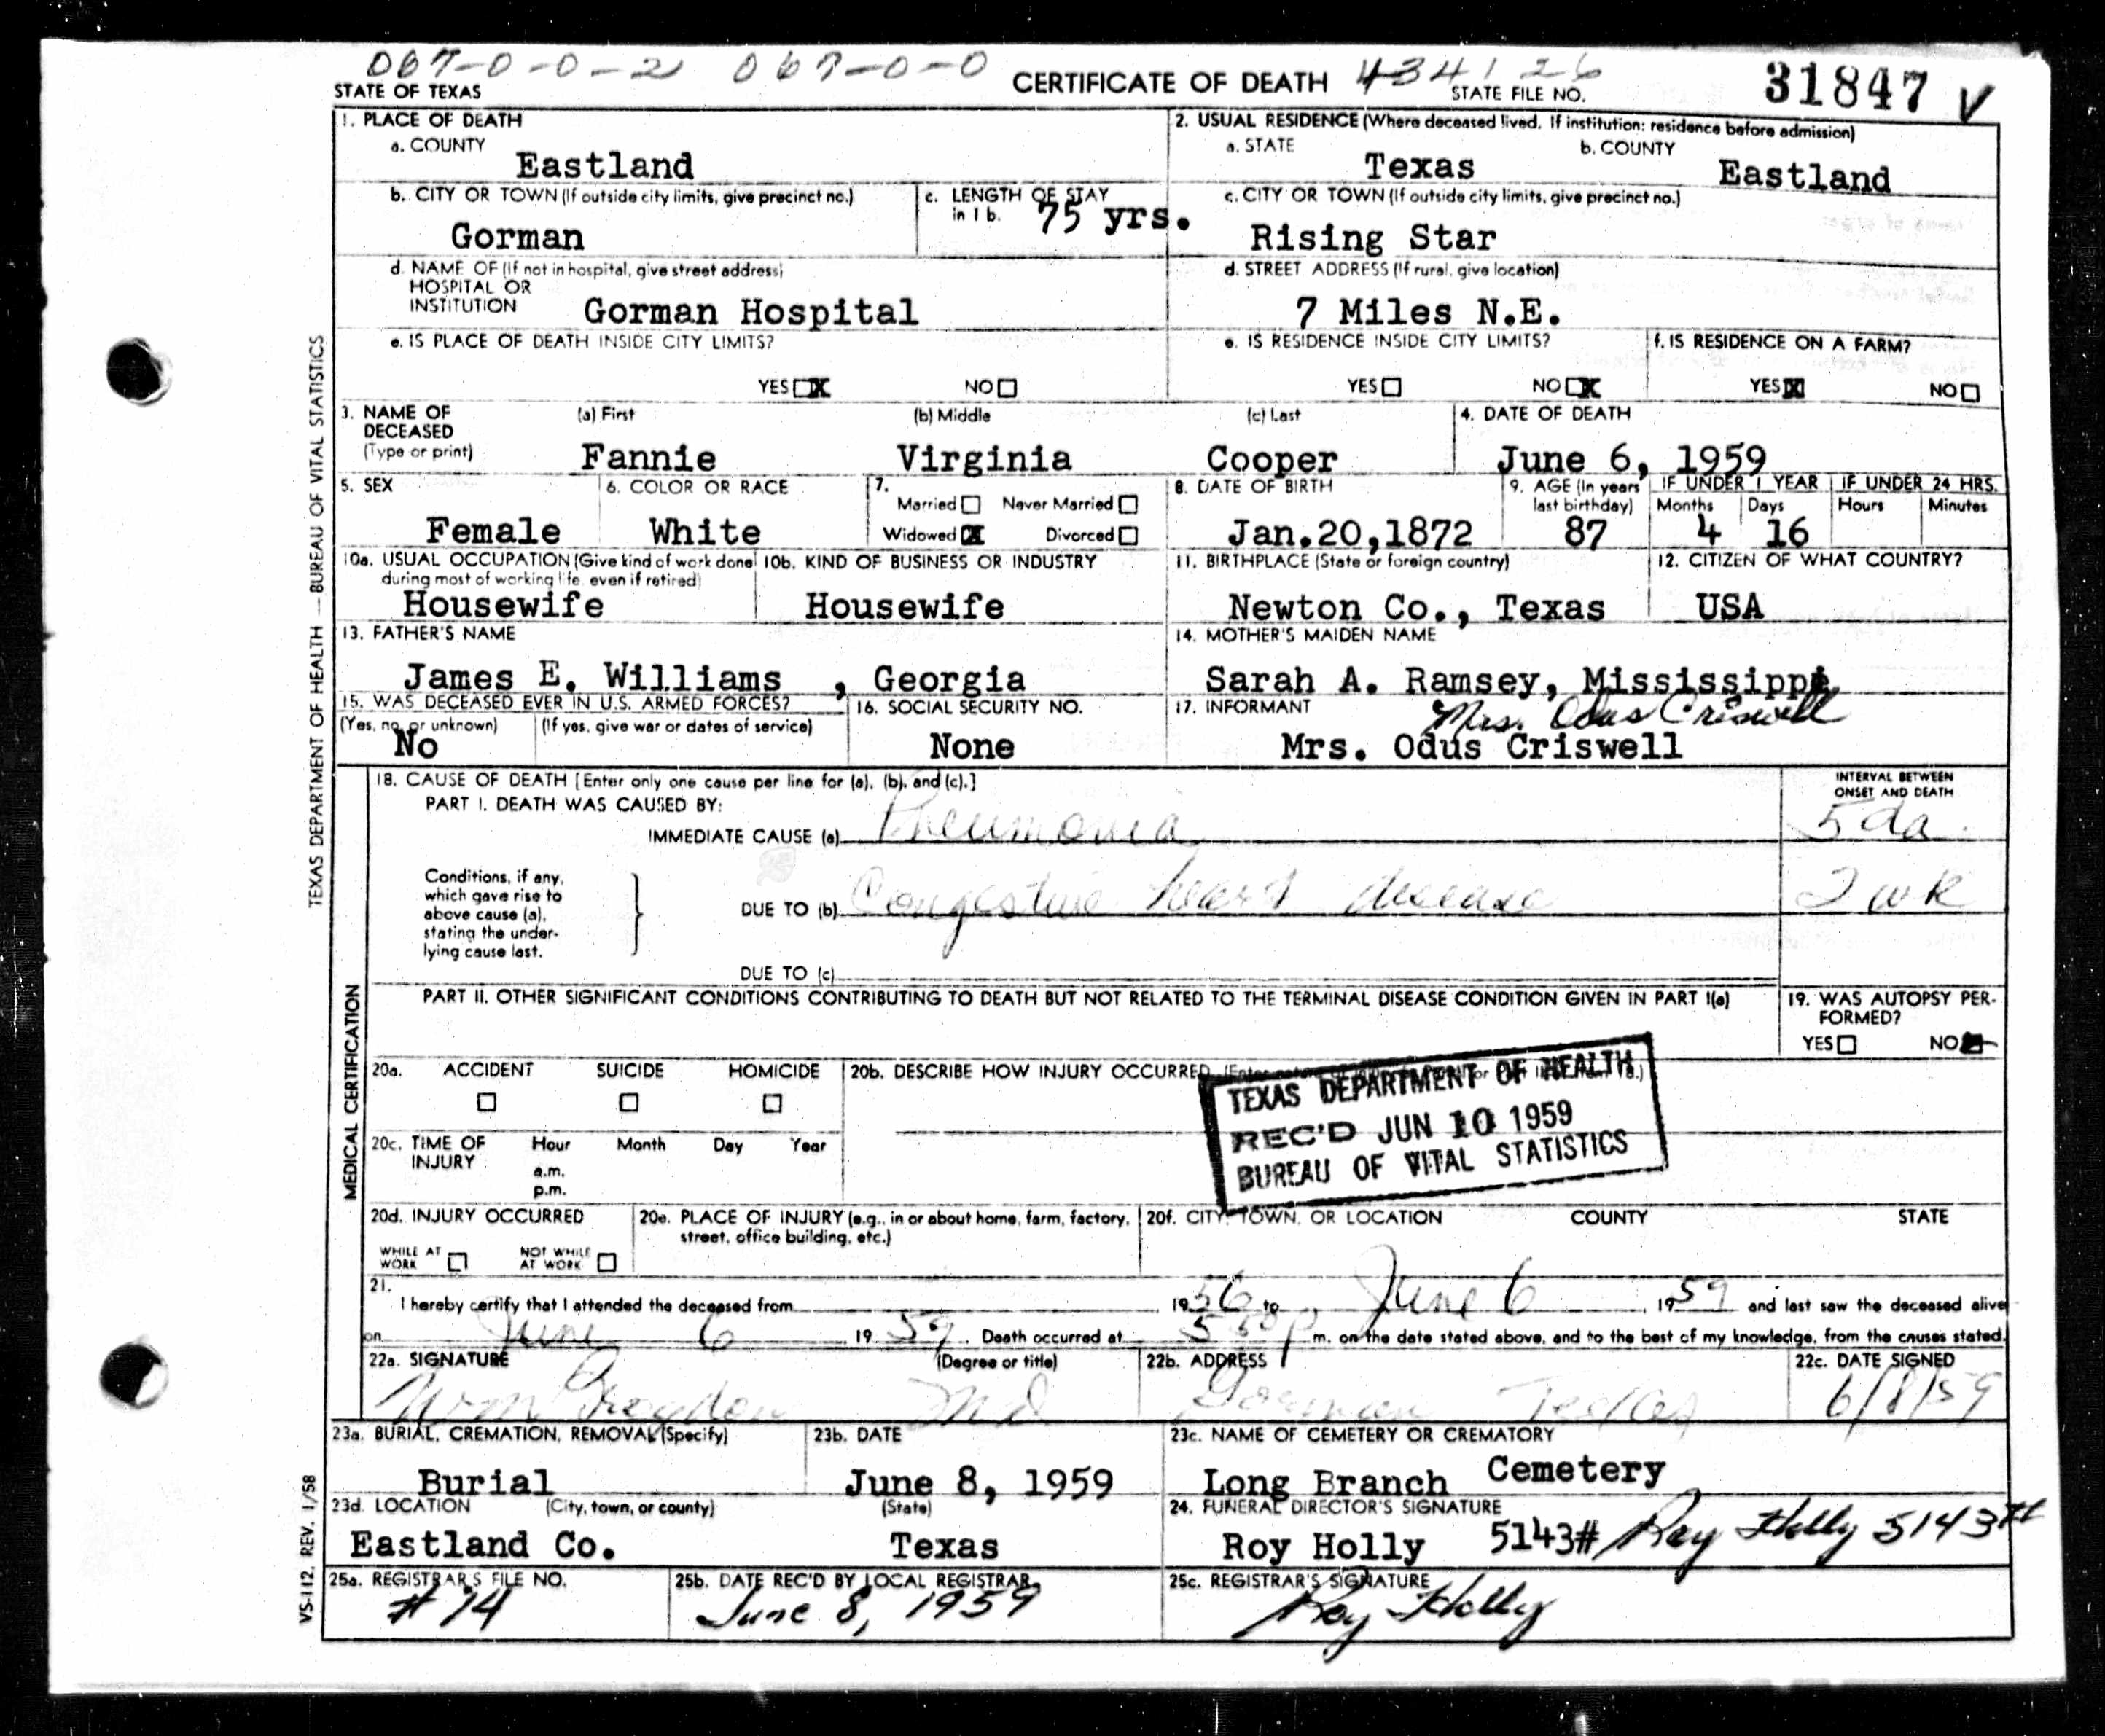 067-0-0-2 067-0-0
STATE OF TEXAS
CERTIFICATE OF DEATH
434126
STATE FILE NO.
31847 V
1. PLACE OF DEATH
a. COUNTY
Eastland
b. CITY OR TOWN (If outside city limits, give precinct no.)
Gorman
c. LENGTH OF STAY
in 1 b. 75 yrs.
d. NAME OF (If not in hospital, give street address)
HOSPITAL OR
INSTITUTION Gorman Hospital
e. IS PLACE OF DEATH INSIDE CITY LIMITS?
YES X NO
2. USUAL RESIDENCE (Where deceased lived. If institution: residence before admission)
a. STATE Texas
b. COUNTY Eastland
c. CITY OR TOWN (If outside city limits, give precinct no.)
Rising Star
d. STREET ADDRESS (If rural, give location)
7 Miles N.E.
e. IS RESIDENCE INSIDE CITY LIMITS?
YES NO X
f. IS RESIDENCE ON A FARM?
YES X NO
3. NAME OF
DECEASED
(Type or print)
(a) First (b) Middle (c) Last
Fannie Virginia Cooper
4. DATE OF DEATH
June 6, 1959
5. SEX
Female
6. COLOR OR RACE
White
7.
Married Never Married
Widowed X Divorced
8. DATE OF BIRTH
Jan.20,1872
9. AGE (In years
last birthday)
87
IF UNDER 1 YEAR
Months Days
4 16
IF UNDER 24 HRS.
Hours Minutes
10a. USUAL OCCUPATION (Give kind of work done
during most of working life, even if retired)
Housewife
10b. KIND OF BUSINESS OR INDUSTRY
Housewife
11. BIRTHPLACE (State or foreign country)
Newton Co., Texas
12. CITIZEN OF WHAT COUNTRY?
USA
13. FATHER'S NAME
James E. Williams , Georgia
14. MOTHER'S MAIDEN NAME
Sarah A. Ramsey, Mississippi
15. WAS DECEASED EVER IN U.S. ARMED FORCES?
(Yes, no, or unknown) (If yes, give war or dates of service)
No
16. SOCIAL SECURITY NO.
None
17. INFORMANT
Mrs. Odus Criswell
Mrs. Odus Criswell
18. CAUSE OF DEATH [Enter only one cause per line for (a), (b), and (c).]
PART I. DEATH WAS CAUSED BY:
IMMEDIATE CAUSE (a) Pneumonia
INTERVAL BETWEEN
ONSET AND DEATH
5 da.
Conditions, if any,
which gave rise to
above cause (a),
stating the under-
lying cause last.
DUE TO (b) Congestive heart disease
2 wk
DUE TO (c)
PART II. OTHER SIGNIFICANT CONDITIONS CONTRIBUTING TO DEATH BUT NOT RELATED TO THE TERMINAL DISEASE CONDITION GIVEN IN PART I(a)
19. WAS AUTOPSY PER-
FORMED?
YES NO
20a. ACCIDENT SUICIDE HOMICIDE
20b. DESCRIBE HOW INJURY OCCURRED
TEXAS DEPARTMENT OF HEALTH
REC'D JUN 10 1959
BUREAU OF VITAL STATISTICS
20c. TIME OF
INJURY
Hour Month Day Year
a.m.
p.m.
20d. INJURY OCCURRED
WHILE AT
WORK
NOT WHILE
AT WORK
20e. PLACE OF INJURY (e.g., in or about home, farm, factory,
street, office building, etc.)
20f. CITY, TOWN, OR LOCATION COUNTY STATE
21.
I hereby certify that I attended the deceased from 1956 to June 6, 1959 and last saw the deceased alive
on June 6, 1959. Death occurred at 5 50 p m. on the date stated above, and to the best of my knowledge, from the causes stated.
22a. SIGNATURE (Degree or title)
Wm MD
22b. ADDRESS
Gorman Texas
22c. DATE SIGNED
6/8/59
23a. BURIAL, CREMATION, REMOVAL (Specify)
Burial
23b. DATE
June 8, 1959
23c. NAME OF CEMETERY OR CREMATORY
Long Branch Cemetery
23d. LOCATION (City, town, or county) (State)
Eastland Co. Texas
24. FUNERAL DIRECTOR'S SIGNATURE
Roy Holly 5143# Roy Holly 5143#
25a. REGISTRAR'S FILE NO.
#74
25b. DATE REC'D BY LOCAL REGISTRAR
June 8, 1959
25c. REGISTRAR'S SIGNATURE
Roy Holly
TEXAS DEPARTMENT OF HEALTH — BUREAU OF VITAL STATISTICS
MEDICAL CERTIFICATION
VS-112, REV. 1/58